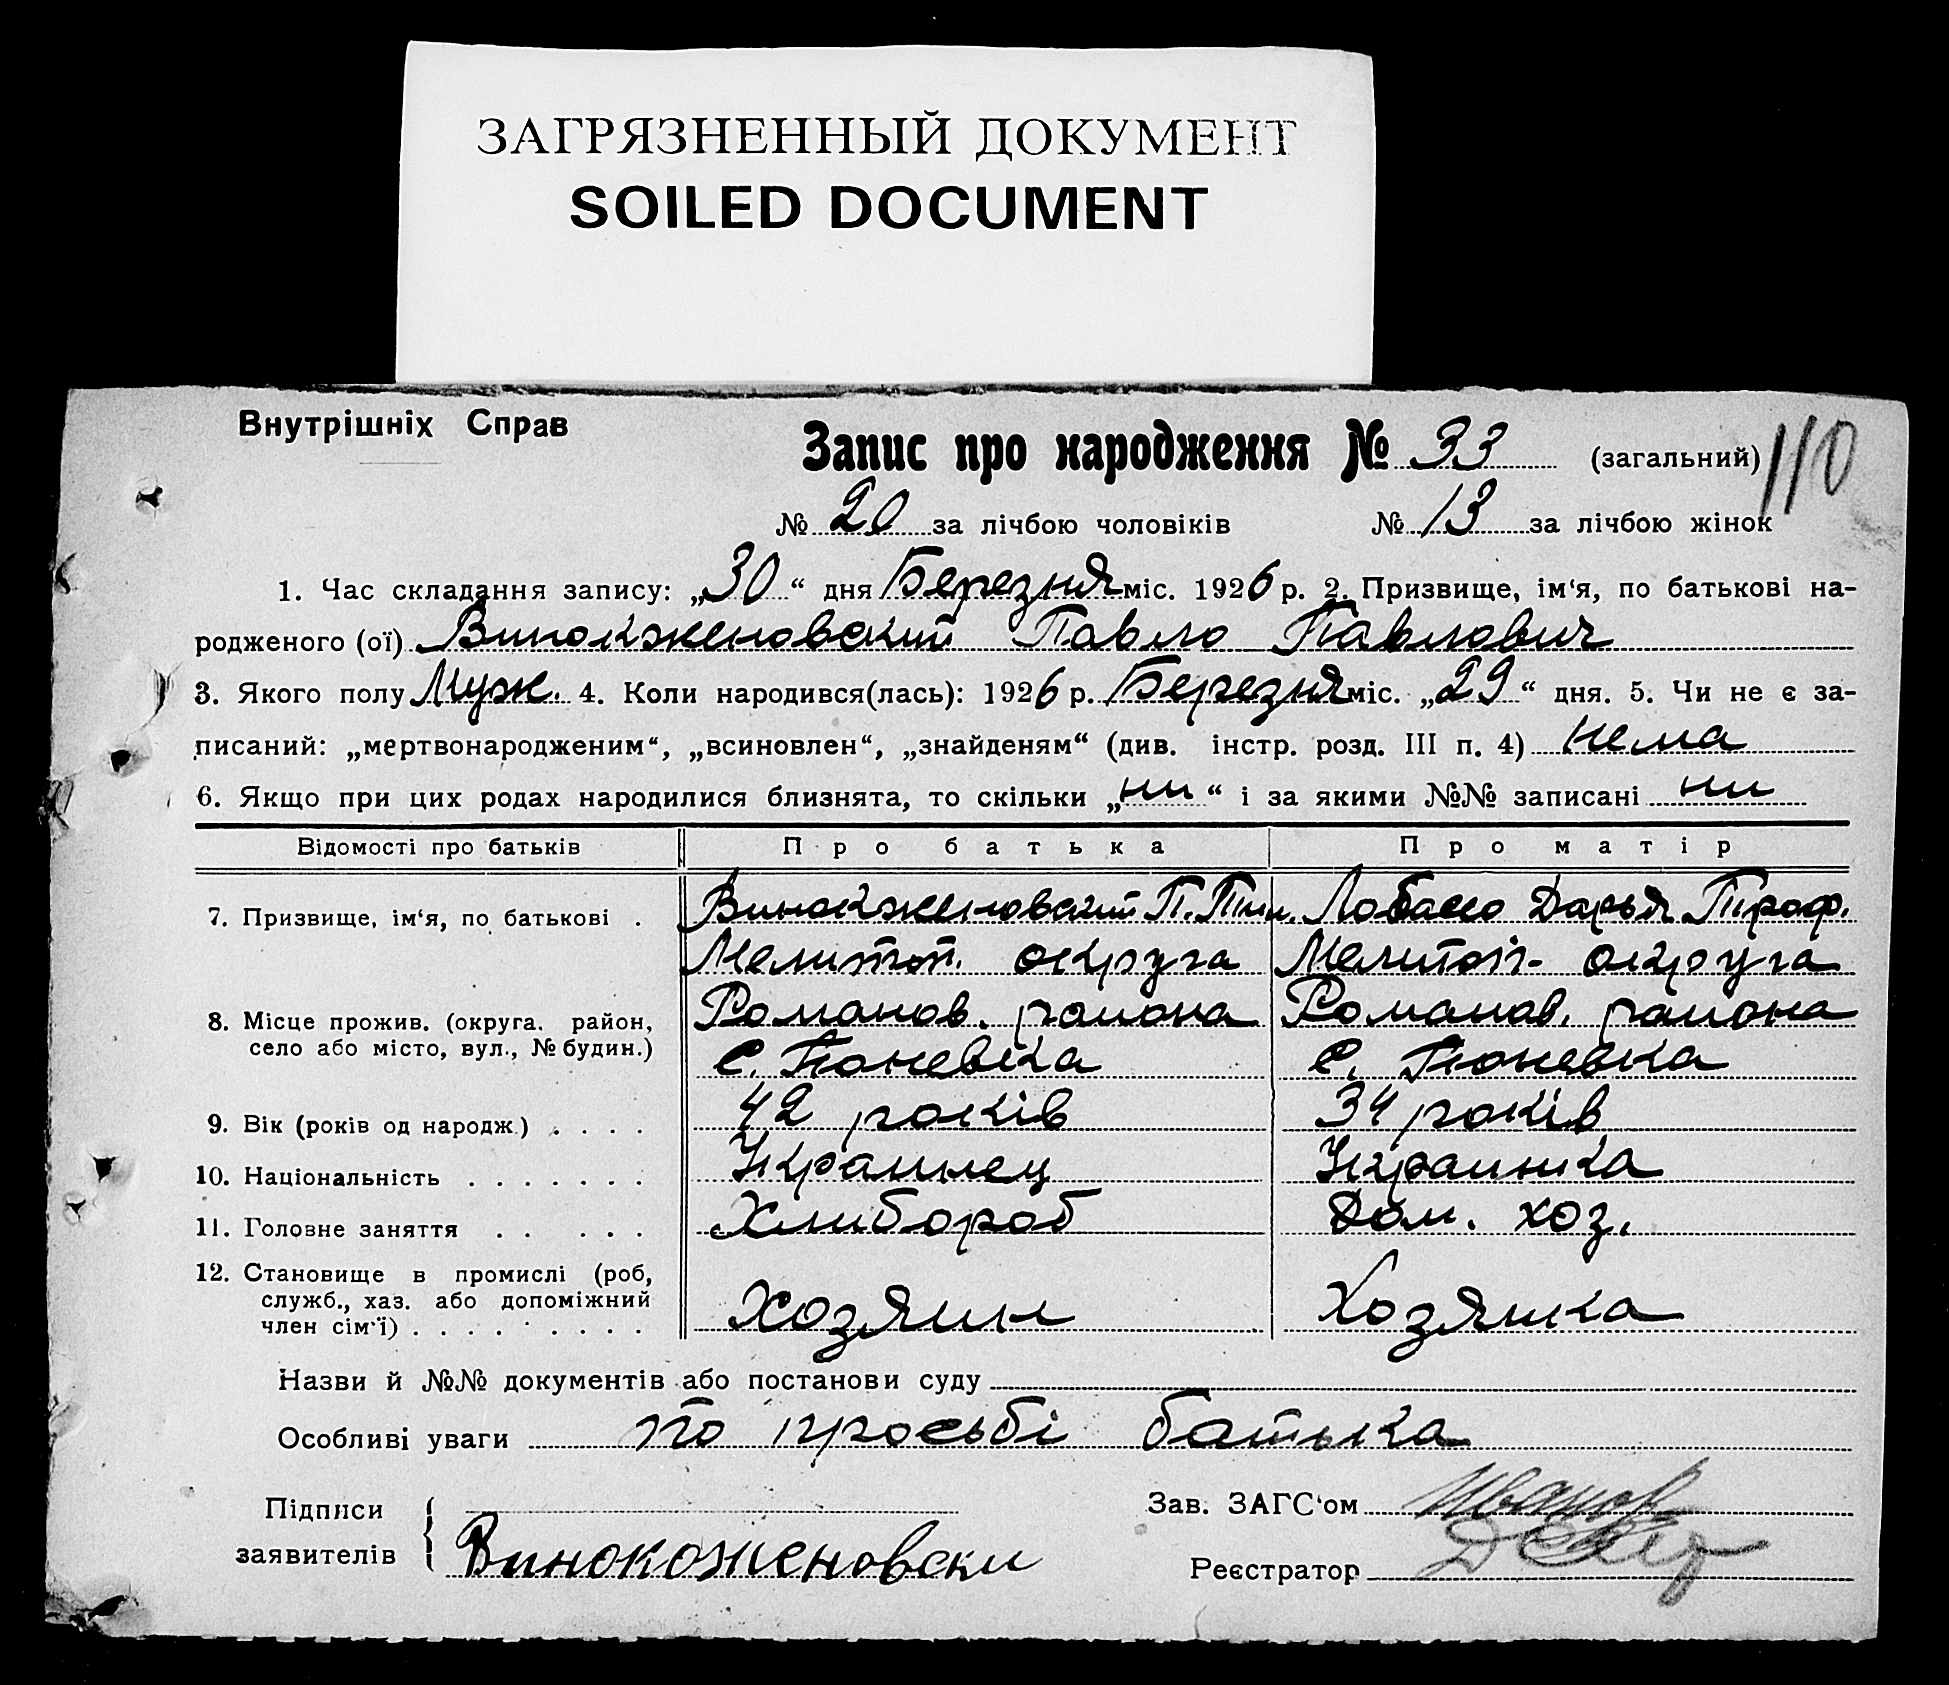 ЗАГРЯЗНЕННЫЙ ДОКУМЕНТ
SOILED DOCUMENT
Внутрішніх Справ
Запис про народження № 33 (загальний) 110
№ 20 за лічбою чоловіків № 13 за лічбою жінок
1. Час складання запису: „30“ дня Березня міс. 1926 р. 2. Призвище, ім‘я, по батькові на-
родженого (ої) Винокженовский Павло Павлович
3. Якого полу Муж. 4. Коли народився(лась): 1926 р. Березня міс. „29“ дня. 5. Чи не є за-
писаний: „мертвонародженим“, „всиновлен“, „знайденям“ (див. інстр. розд. III п. 4) нема
6. Якщо при цих родах народилися близнята, то скільки „ни“ і за якими №№ записані ни
Відомості про батьків Про батька Про матір
7. Призвище, ім‘я, по батькові . Винокженовский П. Дарья Троф.
Мелитоп. округа Мелитоп. округа
8. Місце прожив. (округа. район, Романов. района Романов. района
село або місто, вул., № будин.) с. с.
9. Вік (років од народж.) . . . . 42 років 34 років
10. Національність . . . . . . . Украинец Украинка
11. Головне заняття . . . . . Хлибороб Дом. хоз.
12. Становище в промислі (роб,
служб., хаз. або допоміжний Хозяин Хозяика
член сім‘ї) . . . . . . . . .
Назви й №№ документів або постанови суду
Особливі уваги по просьбі батька
Підписи Зав. ЗАГС‘ом Иванов
заявителів Винокоженовски Реєстратор